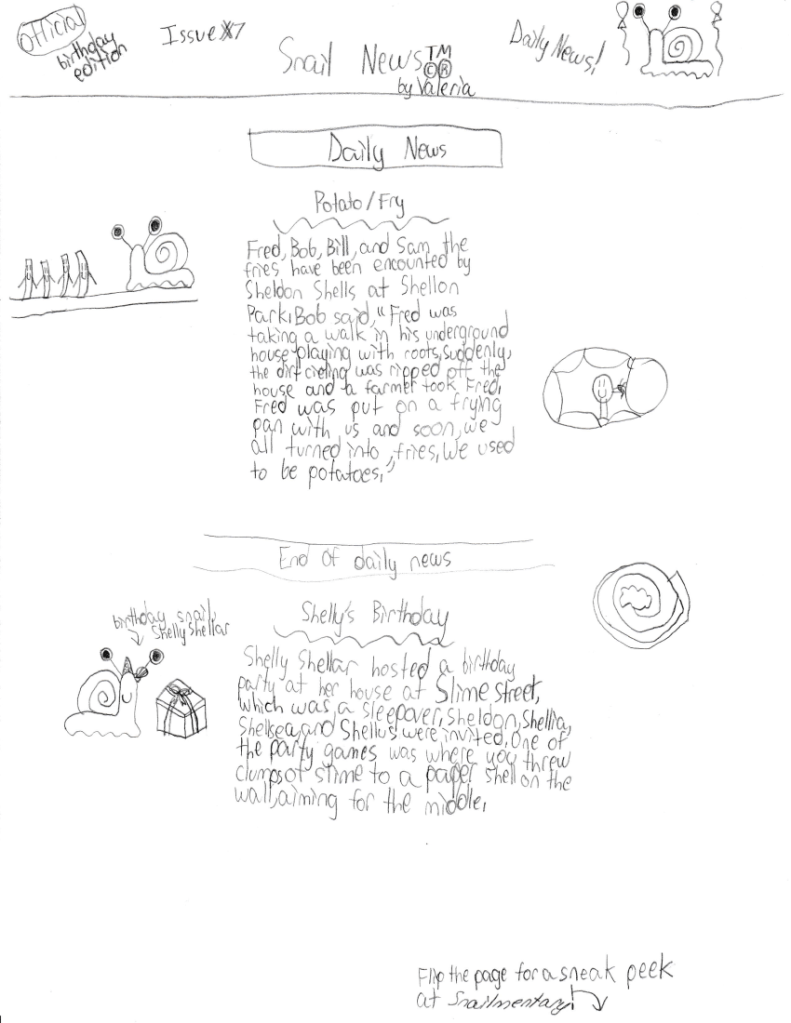 official
birthday
edition
Issue X7
Snail News TM
© ®
by Valeria
Daily News!
Daily News
Potato/Fry
Fred, Bob, Bill, and Sam the
fries have been encounted by
Sheldon Shells at Shellon
Park. Bob said, "Fred was
taking a walk in his underground
house playing with roots, suddenly,
the dirt cieling was ripped off the
house and a farmer took Fred.
Fred was put on a frying
pan with us and soon, we
all turned into fries, We used
to be potatoes."
End of daily news
birthday snail,
Shelly Shellar
Shelly's Birthday
Shelly Shellar hosted a birthday
party at her house at Slime street,
which was a sleepover, Sheldon, Shellia,
Shelsea, and Shellus were invited. One of
the party games was where you threw
clumps of slime to a paper shell on the
wall, aiming for the middle.
Flip the page for a sneak peek
at Snailmentary!